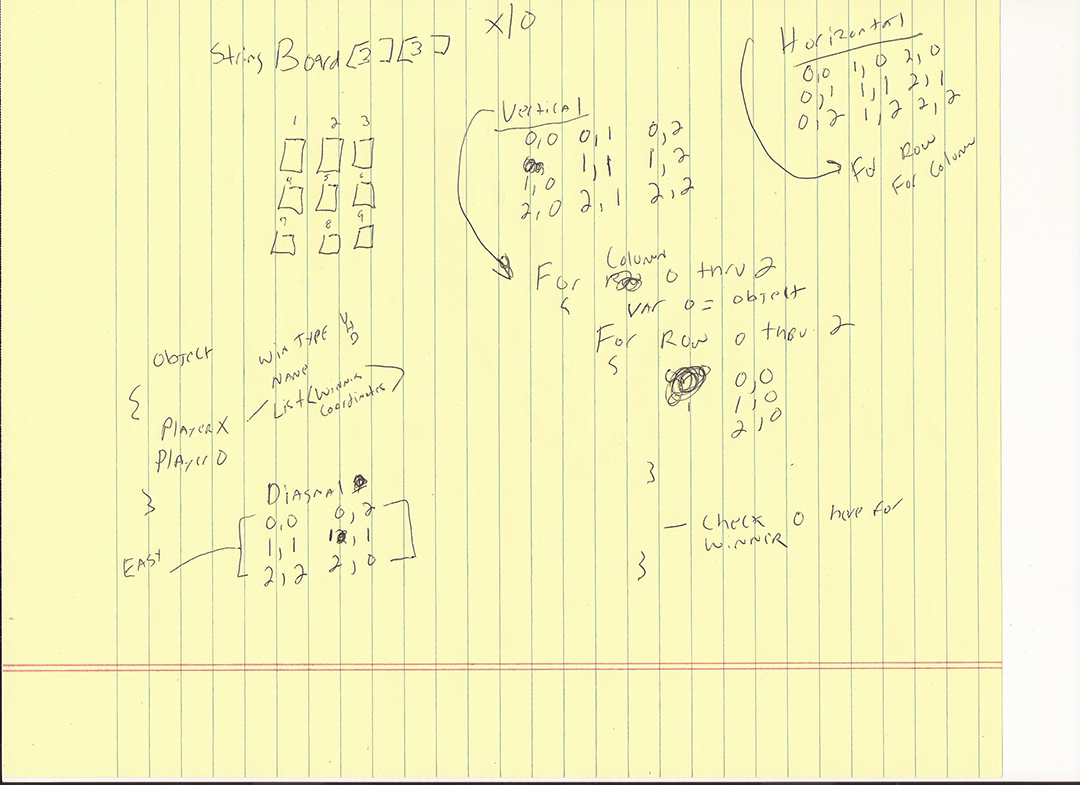 X/O
String Board[3][3]
1 2 3
4 5 6
7 8 9
Vertical
0,0 0,1 0,2
1,1 1,2
1,0
2,0 2,1 2,2
Horizontal
0,0 1,0 2,0
0,1 1,1 2,1
0,2 1,2 2,2
For Row
For Column
Column
For 0 thru 2
{ VAR O = object
For Row 0 thru 2
{
0,0
1,0
2,0
}
— Check O here for
WINNER
}
Object
{
Player X
Player O
}
WIN TYPE V
H
D
NAME
List (Winning
Coordinates)
Diagnal
0,0 0,2
1,1 1,1
2,2 2,0
EASY